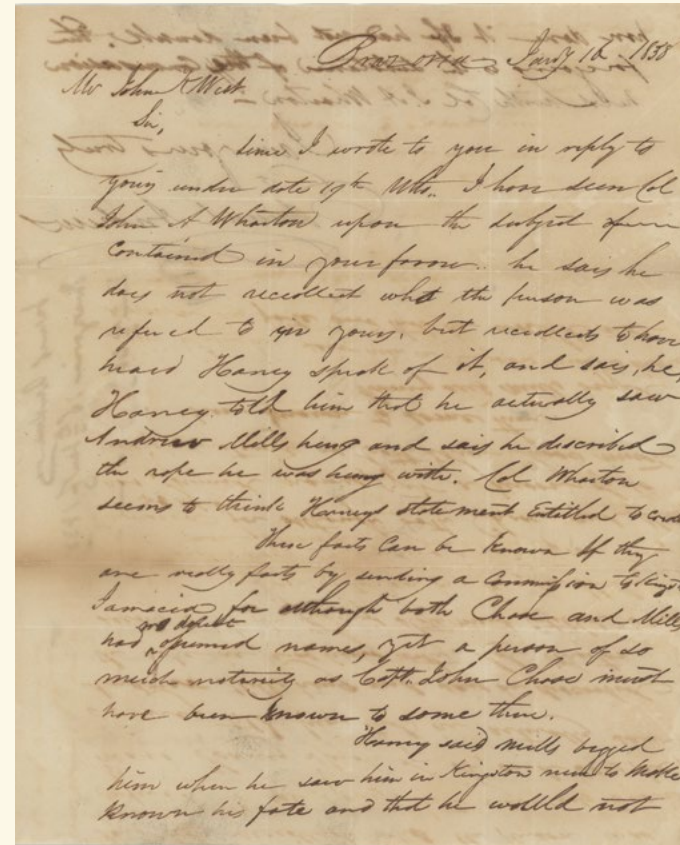 Brazoria Jany 1d 1838
Mr John K West
Sir,
Since I wrote to you in reply to
yours under date 19th Ulto. I have seen Col
John A Wharton upon the subject
contained in your favour. he says he
does not recollect who the person was
refered to in yours, but recollects to have
heard Haney speak of it, and says, he,
Haney told him that he actually saw
Andrew Mills hung and says he described
the rope he was hung with. Col Wharton
seems to think Haneys statement Entitled to
These facts can be known If they
are really facts by sending a Commission to
Jamacia for although both Chase and Mills
had names, yet a person of so
much notoriety as Capt. John Chase must
have been known to some there.
Haney said Mills begged
him when he saw him in Kingston to make
known his fate and that he would not